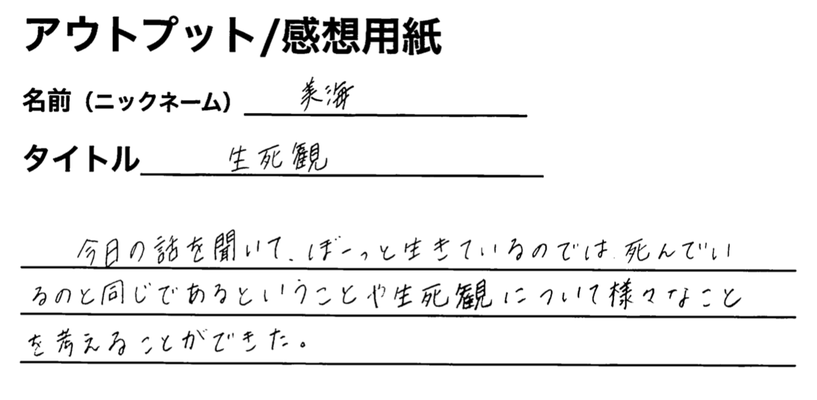 アウトプット/感想用紙
名前（ニックネーム） 美海
タイトル 生死観
今日の話を聞いて、ぼーっと生きているのでは、死んでい
るのと同じであるということや生死観について様々なこと
を考えることができた。